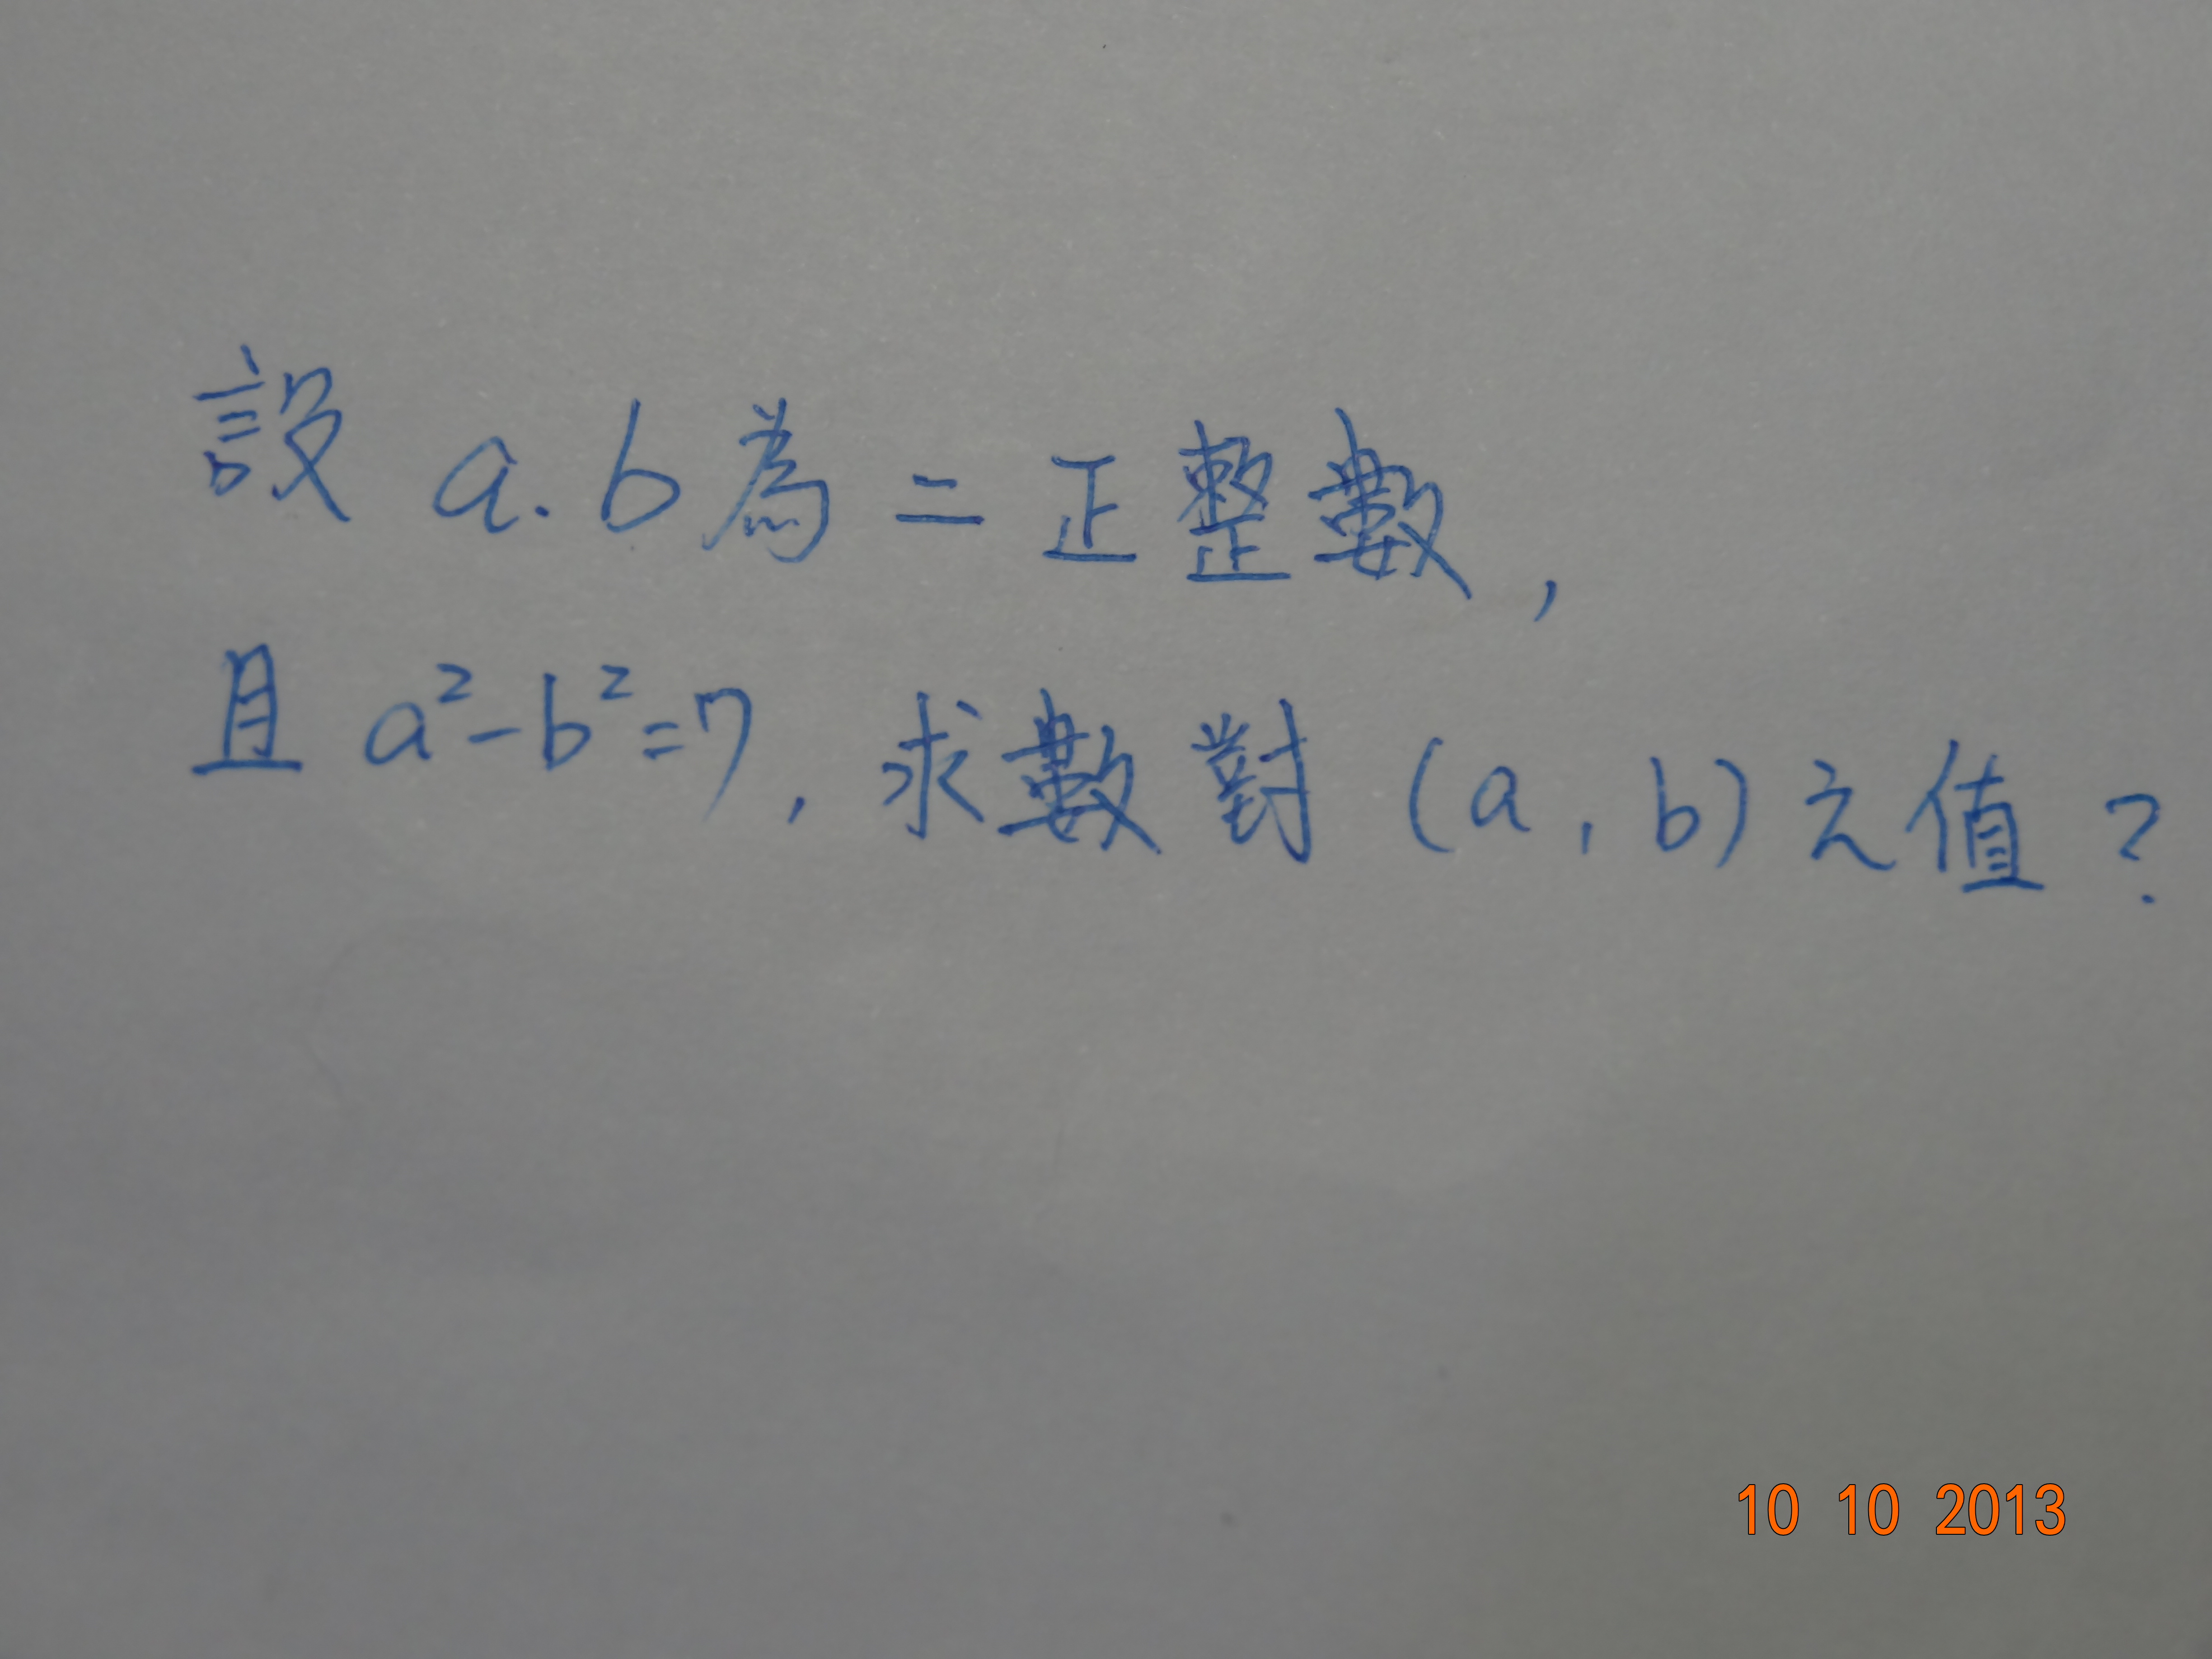 設 a.b為二正整數,
且 a²-b²=7, 求數對 (a,b)之值?
10 10 2013